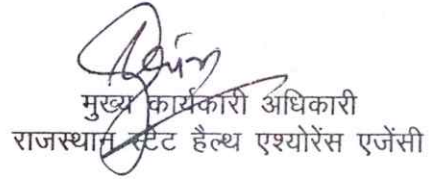 मुख्य कार्यकारी अधिकारी
राजस्थान स्टेट हैल्थ एश्योरेंस एजेंसी